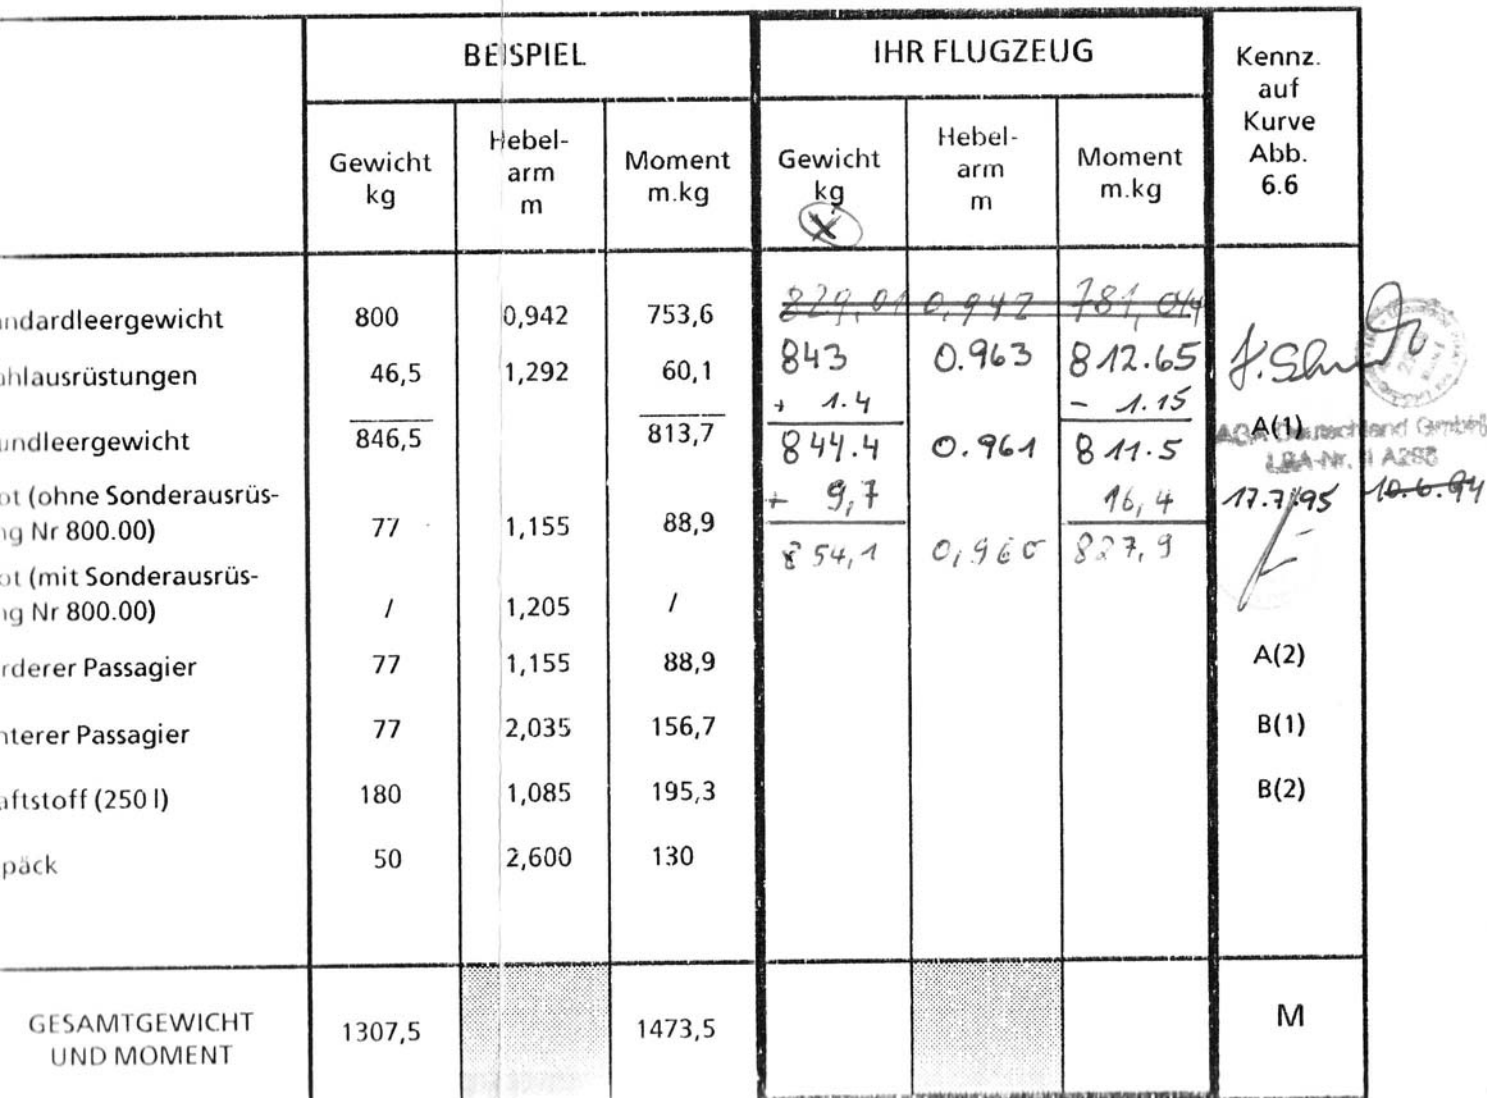 BEISPIEL IHR FLUGZEUG Kennz. auf Kurve Abb. 6.6
Gewicht kg Hebel- arm m Moment m.kg Gewicht kg Hebel- arm m Moment m.kg
X
829,01 0,942 781,04
andardleergewicht 800 0,942 753,6
843 0.963 812.65
ahlausrüstungen 46,5 1,292 60,1
+ 1.4 - 1.15
undleergewicht 846,5 813,7 844.4 0.961 811.5 A(1)
AGA Deutschland GmbH
LBA-Nr.
ot (ohne Sonderausrüs-
+ 9,7 16,4 17.7.95 10.6.94
ng Nr 800.00) 77 1,155 88,9
854,1 827,9
ot (mit Sonderausrüs-
ng Nr 800.00) / 1,205 /
rderer Passagier 77 1,155 88,9 A(2)
nterer Passagier 77 2,035 156,7 B(1)
aftstoff (250 l) 180 1,085 195,3 B(2)
päck 50 2,600 130
GESAMTGEWICHT
UND MOMENT 1307,5 1473,5 M